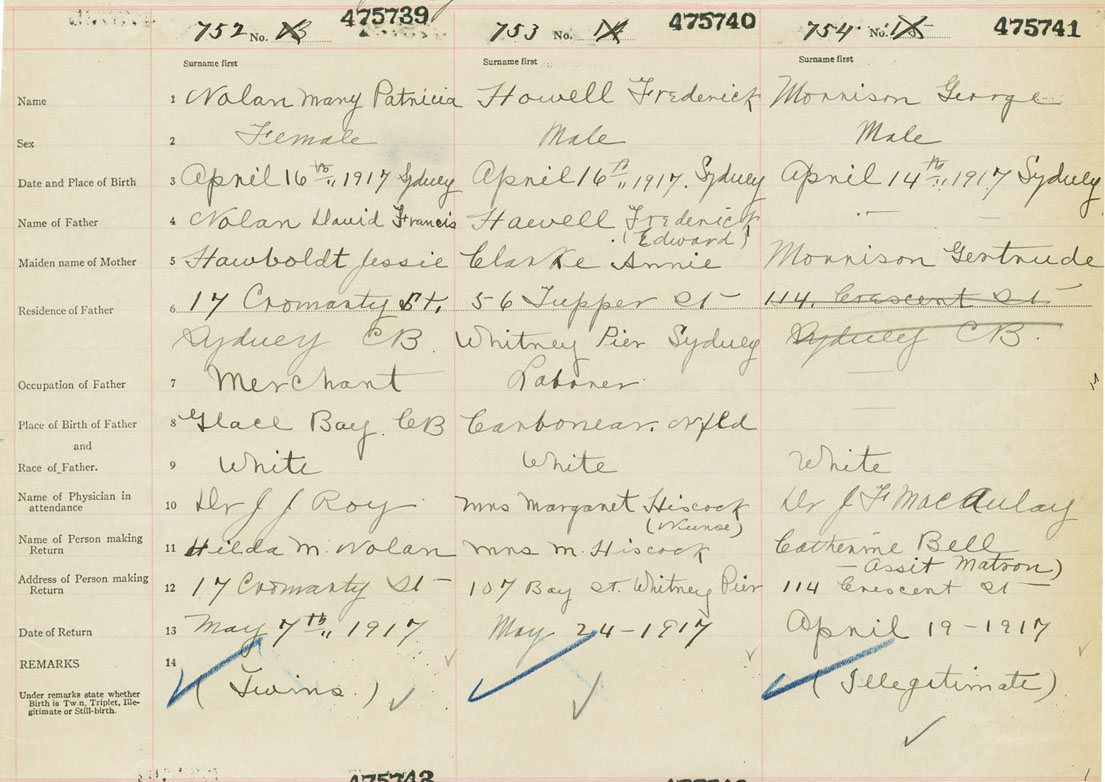 475739 475740 475741
752 No. 753 No. 754 No.
Surname first Surname first Surname first
Name 1 Nolan Mary Patricia Howell Frederick Morrison George
Sex 2 Female Male Male
Date and Place of Birth 3 April 16th 1917 Sydney April 16th 1917. Sydney April 14th 1917 Sydney
Name of Father 4 Nolan David Francis Howell Frederick
(Edward)
Maiden name of Mother 5 Hawboldt Jessie Clarke Annie Morrison Gertrude
Residence of Father 6 17 Cromarty St. 56 Tupper St 114. Crescent St
Sydney CB. Whitney Pier Sydney Sydney CB.
Occupation of Father 7 Merchant Laborer
Place of Birth of Father 8 Glace Bay. CB Carbonear. Nfld
and
Race of Father. 9 White White White
Name of Physician in
attendance 10 Dr J J Roy Mrs Margaret Hiscock Dr J F MacAulay
(Nurse)
Name of Person making
Return 11 Hilda M. Nolan Mrs M. Hiscock Catherine Bell
Assit Matron)
Address of Person making
Return 12 17 Cromarty St 107 Bay St. Whitney Pier 114 Crescent St
Date of Return 13 May 7th 1917 May 24-1917 April 19-1917
REMARKS 14
(Twins.) (Illegitimate)
Under remarks state whether
Birth is Twin, Triplet, Ille-
gitimate or Still-birth.
475743